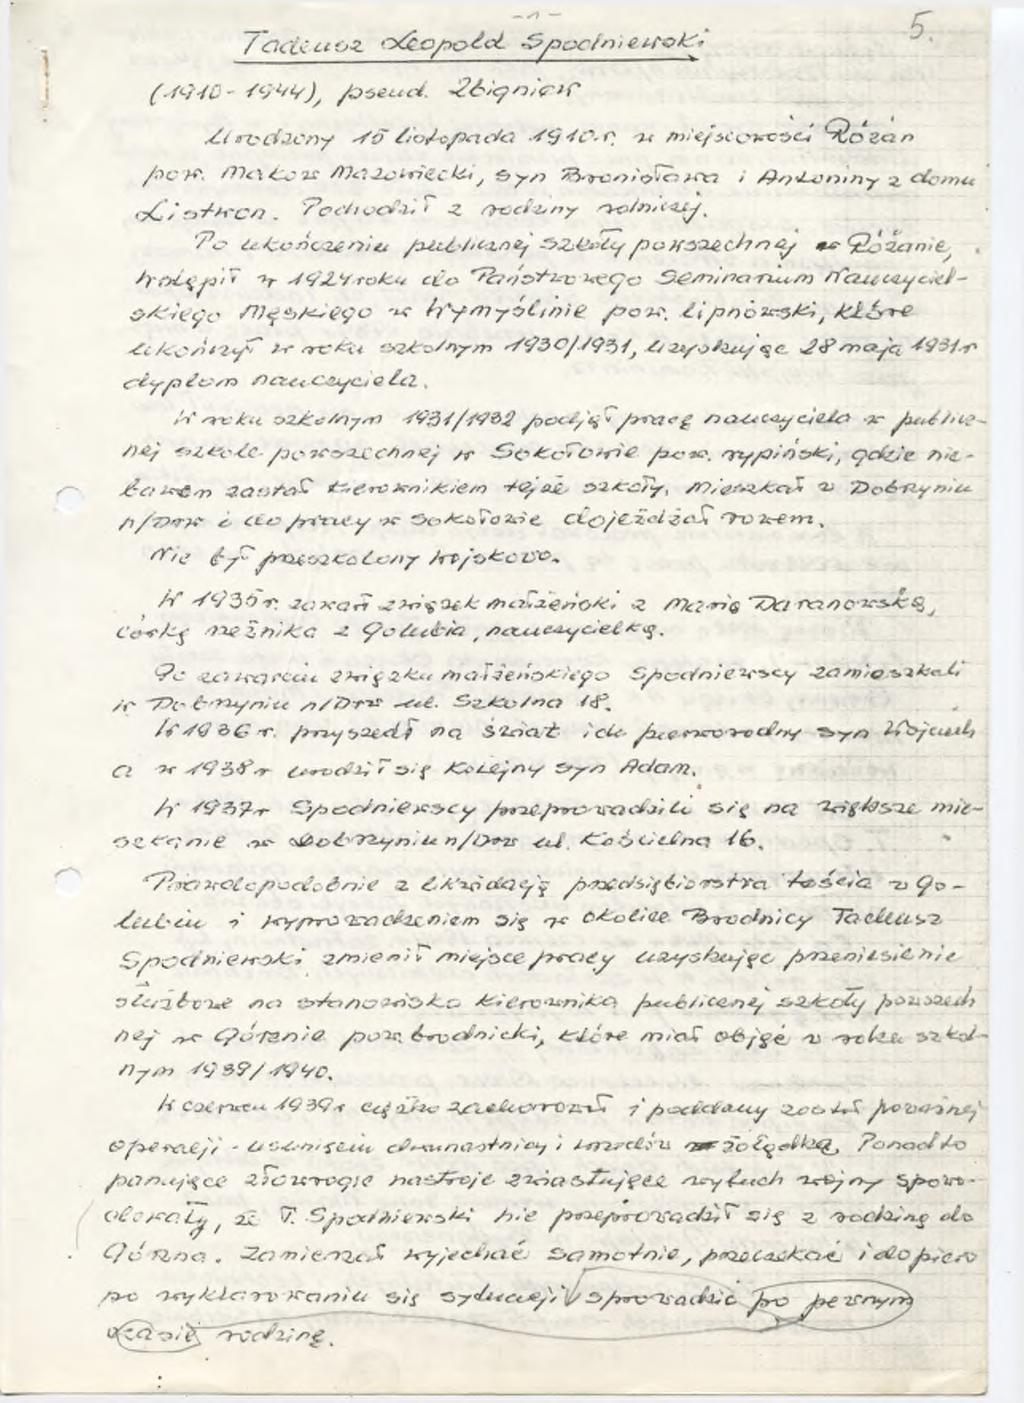 -1-
5.
Tadeusz Leopold Spodniewski
(1910-1944), pseud. Zbigniew
Urodzony 15 listopada 1910.r. w miejscowości Różan
pow. Maków Mazowiecki, syn Bronisława i Antoniny z domu
Listwon. Pochodził z rodziny rolniczej.
Po ukończeniu publicznej szkoły powszechnej w Różanie,
wstąpił w 1924 roku do Państwowego Seminarium Nauczyciel-
skiego Męskiego w Wymyślinie pow. lipnowski, które
ukończył w roku szkolnym 1930/1931, uzyskując 28 maja 1931 r
dyplom nauczyciela.
W roku szkolnym 1931/1932 podjął pracę nauczyciela w publicz-
nej szkole powszechnej w Sokołowie pow. rypiński, gdzie nie-
bawem został kierownikiem tejże szkoły. Mieszkał w Dobrzyniu
n/Drw i do pracy w Sokołowie dojeżdżał rowem.
Nie był przeszkolony wojskowo.
W 1935 r. zawarł związek małżeński z Marią Daranowską,
córką rzeźnika z Golubia, nauczycielką.
Po zawarciu związku małżeńskiego Spodniewscy zamieszkali
w Dobrzyniu n/Drw ul. Szkolna 18.
W 1936 r. przyszedł na świat ich pierworodny syn Wojciech
a w 1938 r urodził się kolejny syn Adam.
W 1937 r Spodniewscy przeprowadzili się na większe mie-
szkanie w Dobrzyniu n/Drw ul. Kościelna 16.
Prawdopodobnie z likwidacją przedsiębiorstwa teścia w Go-
lubiu i wyprowadzeniem się w okolice Brodnicy Tadeusz
Spodniewski zmienił miejsce pracy uzyskując przeniesienie
służbowe na stanowisko kierownika publicznej szkoły powszech
nej w Górznie pow. brodnicki, które miał objąć w roku szkol-
nym 1939/1940.
W czerwcu 1939 r ciężko zachorował i poddany został poważnej
operacji - usunięciu dwunastnicy i wrzodów żołądka. Ponadto
panujące złowrogie nastroje zwiastujące wybuch wojny spowo-
dowały, że T. Spodniewski nie przeprowadził się z rodziną do
Górzna. Zamierzał wyjechać samotnie, przeczekać i dopiero
po wyklarowaniu się sytuacji sprowadzić po pewnym
czasie rodzinę.